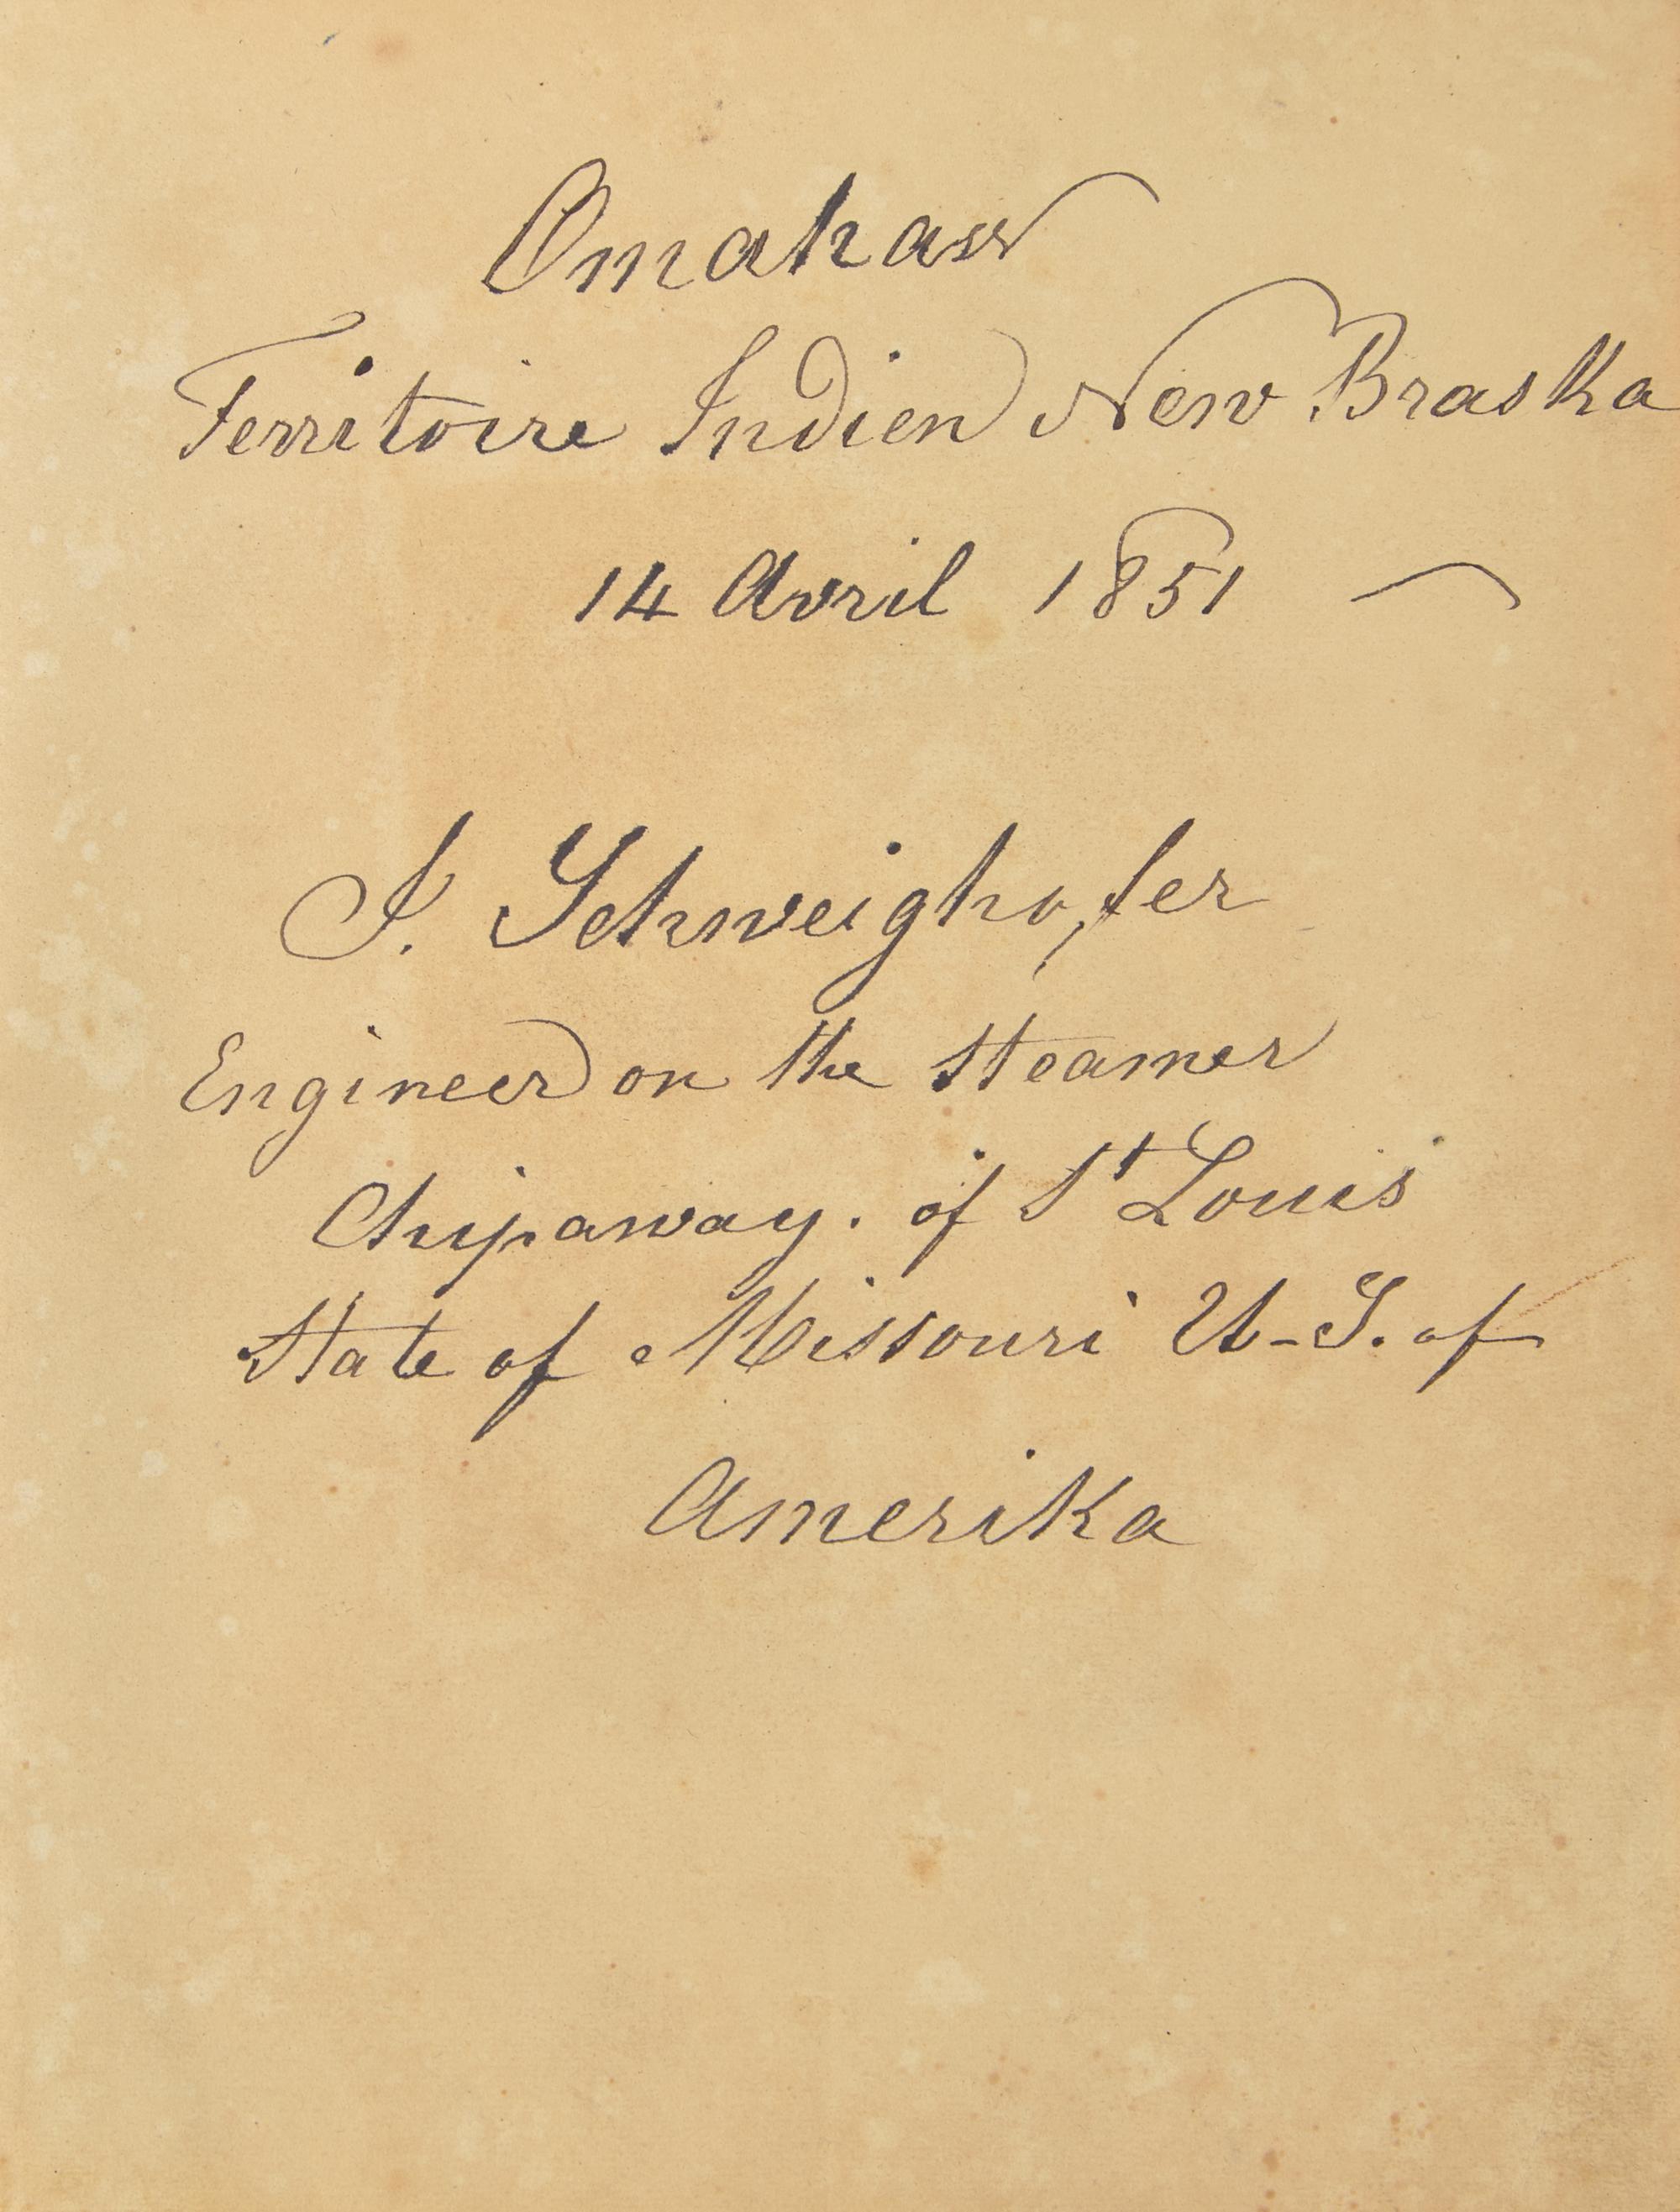 Omahaw
Territoire Indien New Braska
14 Avril 1851
J. Schweighofer
Engineer on the steamer
Chipaway. of St Louis
State of Missouri U-S. of
Amerika